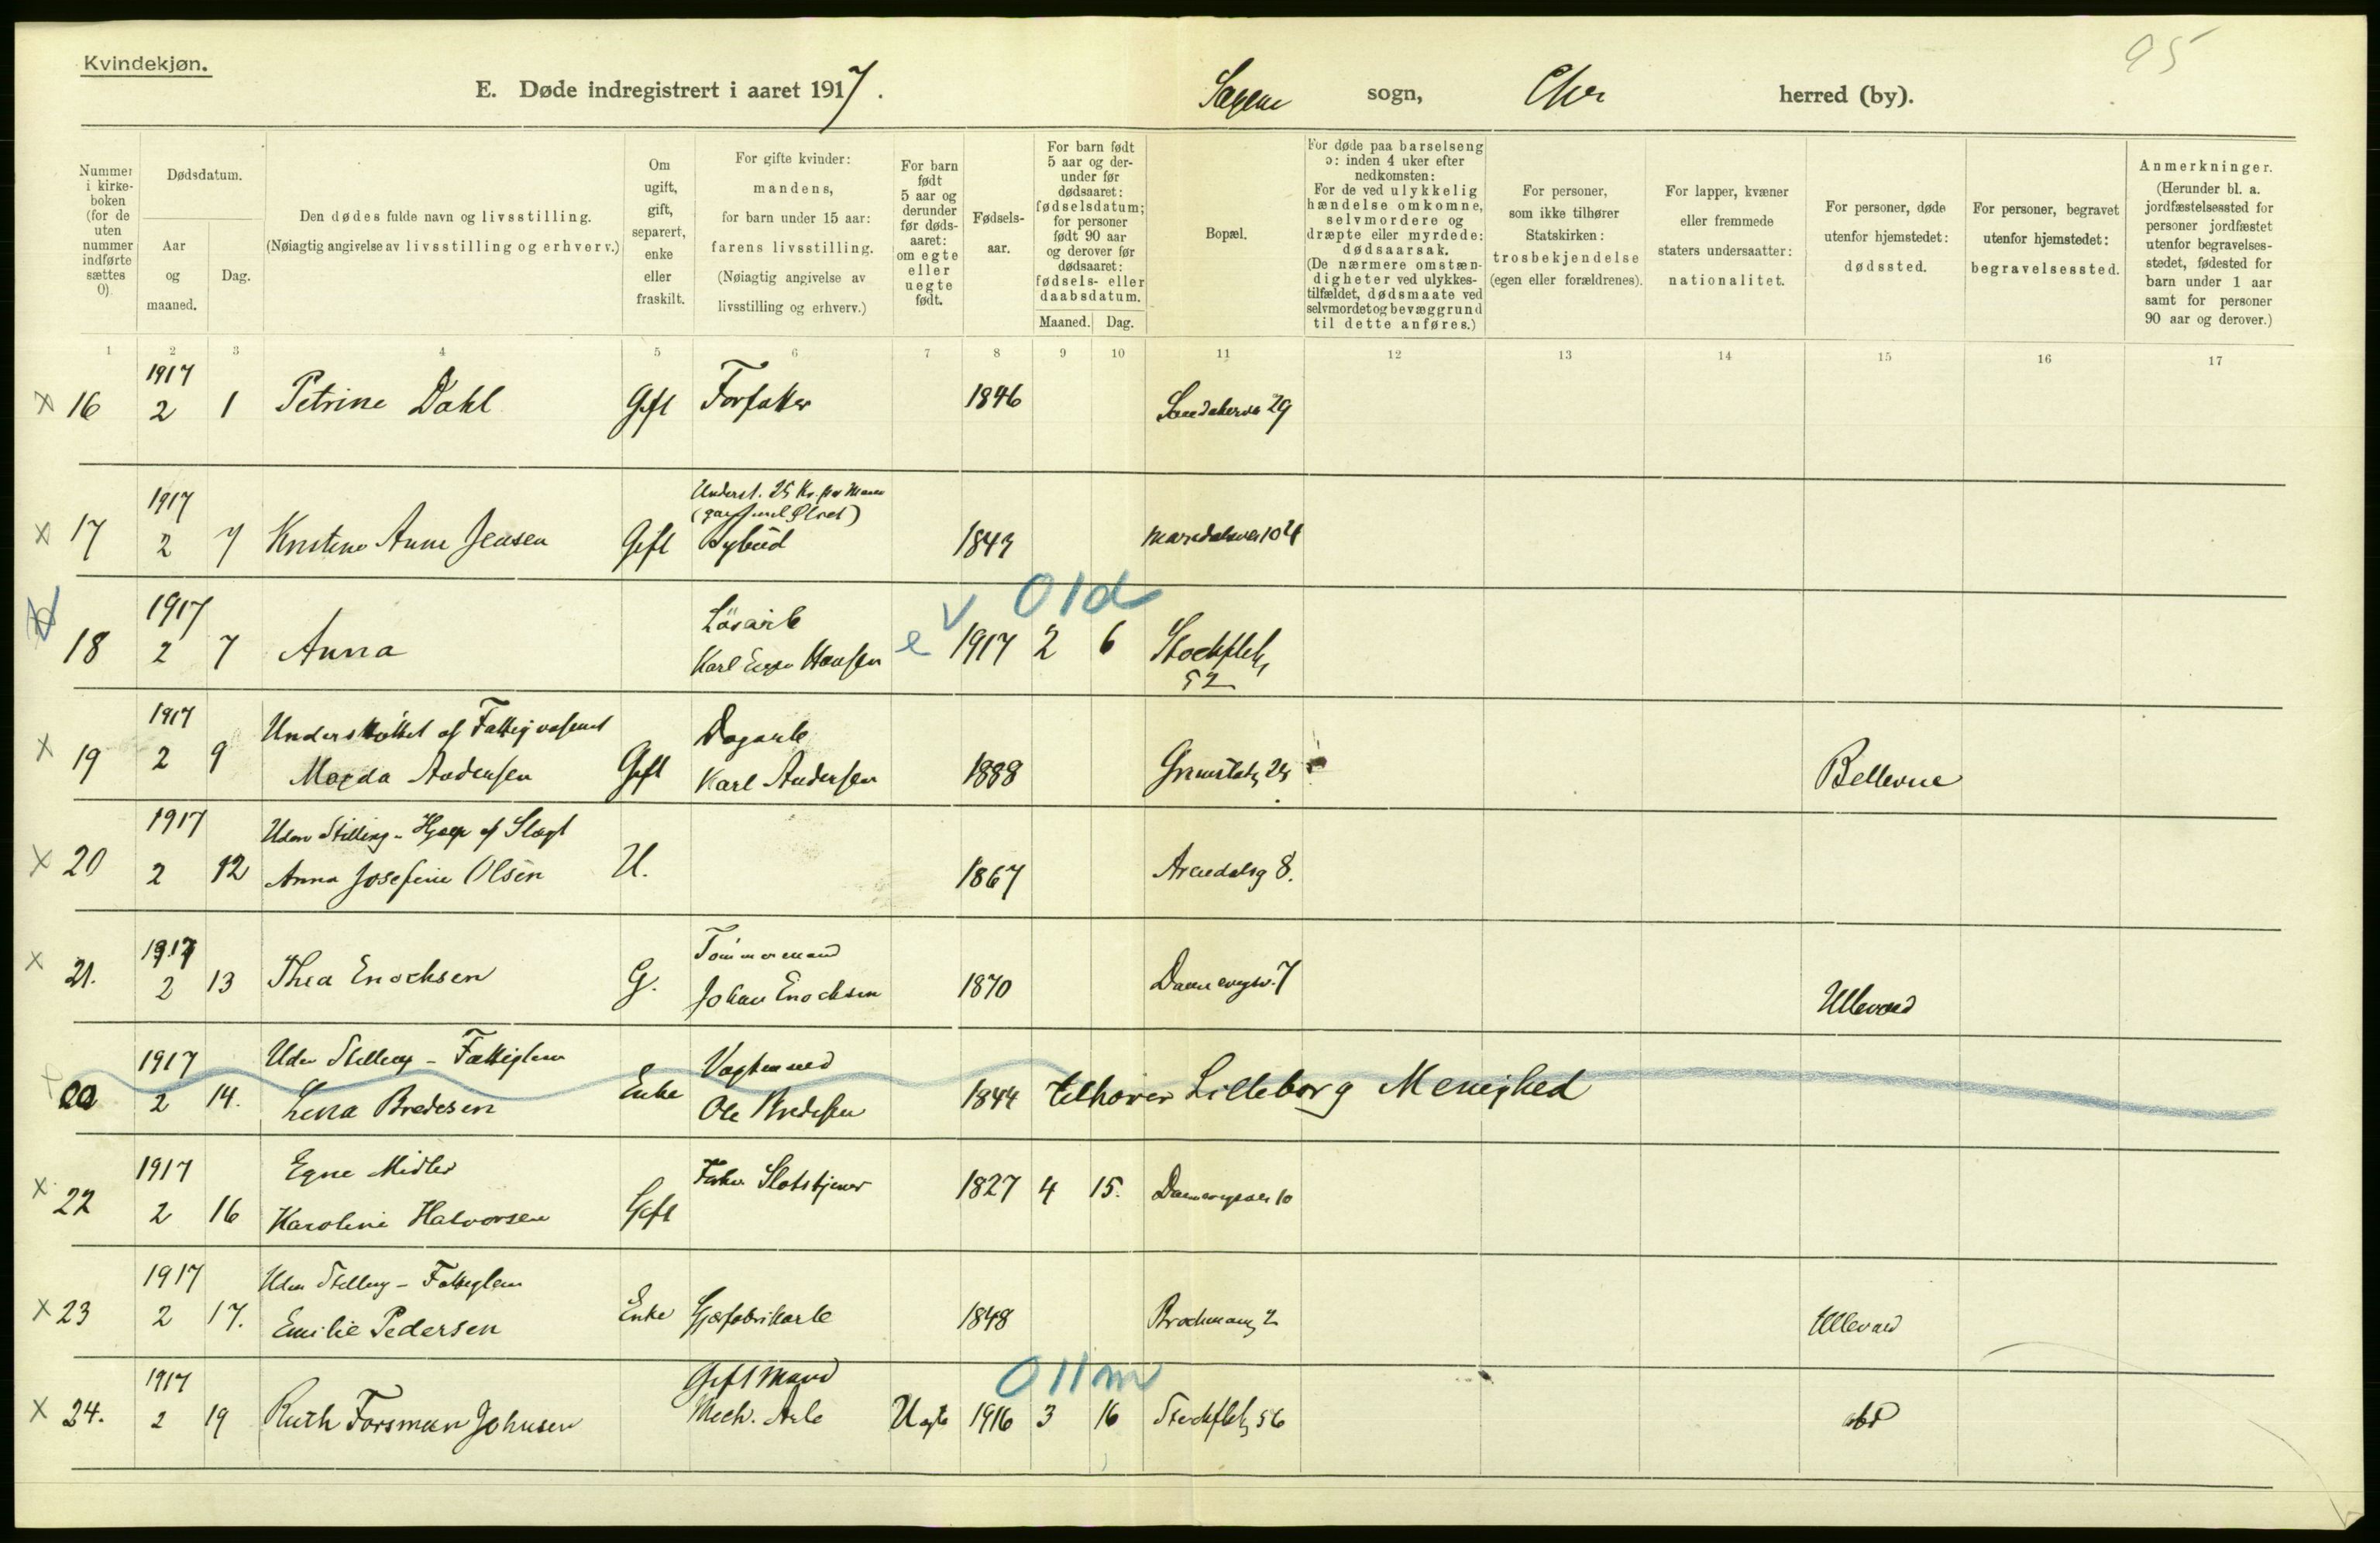 95
Kvindekjøn.
E. Døde indregistrert i aaret 1917.
Sagene sogn, Chr herred (by).
Nummer i kirkeboken (for de uten nummer indførte sættes 0)
Dødsdatum.
Aar og maaned.
Dag.
Den dødes fulde navn og livsstilling.
(Nøiagtig angivelse av livsstilling og erhverv.)
Om ugift, gift, separert, enke eller fraskilt.
For gifte kvinder: mandens, for barn under 15 aar: farens livsstilling.
(Nøiagtig angivelse av livsstilling og erhverv.)
For barn født 5 aar og derunder før dødsaaret: om egte eller uegte født.
Fødselsaar.
For barn født 5 aar og derunder før dødsaaret: fødselsdatum; for personer født 90 aar og derover før dødsaaret: fødsels- eller daabsdatum.
Maaned. Dag.
Bopæl.
For døde paa barselseng ɔ: inden 4 uker efter nedkomsten:
For de ved ulykkelig hændelse omkomne, selvmordere og dræpte eller myrdede: dødsaarsak.
(De nærmere omstændigheter ved ulykkestilfældet, dødsmaate ved selvmordet og bevæggrund til dette anføres.)
For personer, som ikke tilhører Statskirken: trosbekjendelse (egen eller forældrenes).
For lapper, kvæner eller fremmede staters undersaatter: nationalitet.
For personer, døde utenfor hjemstedet: dødssted.
For personer, begravet utenfor hjemstedet: begravelsessted.
Anmerkninger.
(Herunder bl. a. jordfæstelsessted for personer jordfæstet utenfor begravelsesstedet, fødested for barn under 1 aar samt for personer 90 aar og derover.)
1 2 3 4 5 6 7 8 9 10 11 12 13 14 15 16 17
1917
x 16 2 1 Petrine Dahl Gift Forfatter 1846 Sandakerve 29
1917 Underst. 25 Kr. pr Maan
x 17 2 7 Kristine Anne Jensen Gift Sybud 1843 Maridalsvei 104
1917 Løsarb v 01d
18 2 7 Anna Karl Hansen e 1917 2 6 Stockfletg 52
1917 Understøttet af Fattigvæsenet Dagarb
x 19 2 9 Magda Andersen Gift Karl Andersen 1888 Grimstadg 25 Bellevue
1917 Uden Stilling - Hjælp af Slægt
x 20 2 12 Anna Josefine Olsen U. 1867 Arendalsg 8.
1917 Tømmermand
x 21. 2 13 Thea Enochsen G. Johan Enochsen 1870 Dannevigsv. 7 Ullevaal
1917 Uden Stilling - Fattiglem Vagtmand
2 14. Lena Bredesen Enke Ole Bredesen 1844 tilhører Lilleborg Menighed
1917 Egne Midler
x 22 2 16 Karoline Halvorsen Gift Slotstjener 1827 4 15. Dannevigsvei 10
1917 Uden Stilling - Fattiglem
x 23 2 17. Emilie Pedersen Enke Gasfabrikarb 1848 Brochmansg 2 Ullevaal
1917 Gift Mand 011m
x 24. 2 19 Ruth Forsman Johnsen Mech. Arb Uegte 1916 3 16 Stockfletg 56